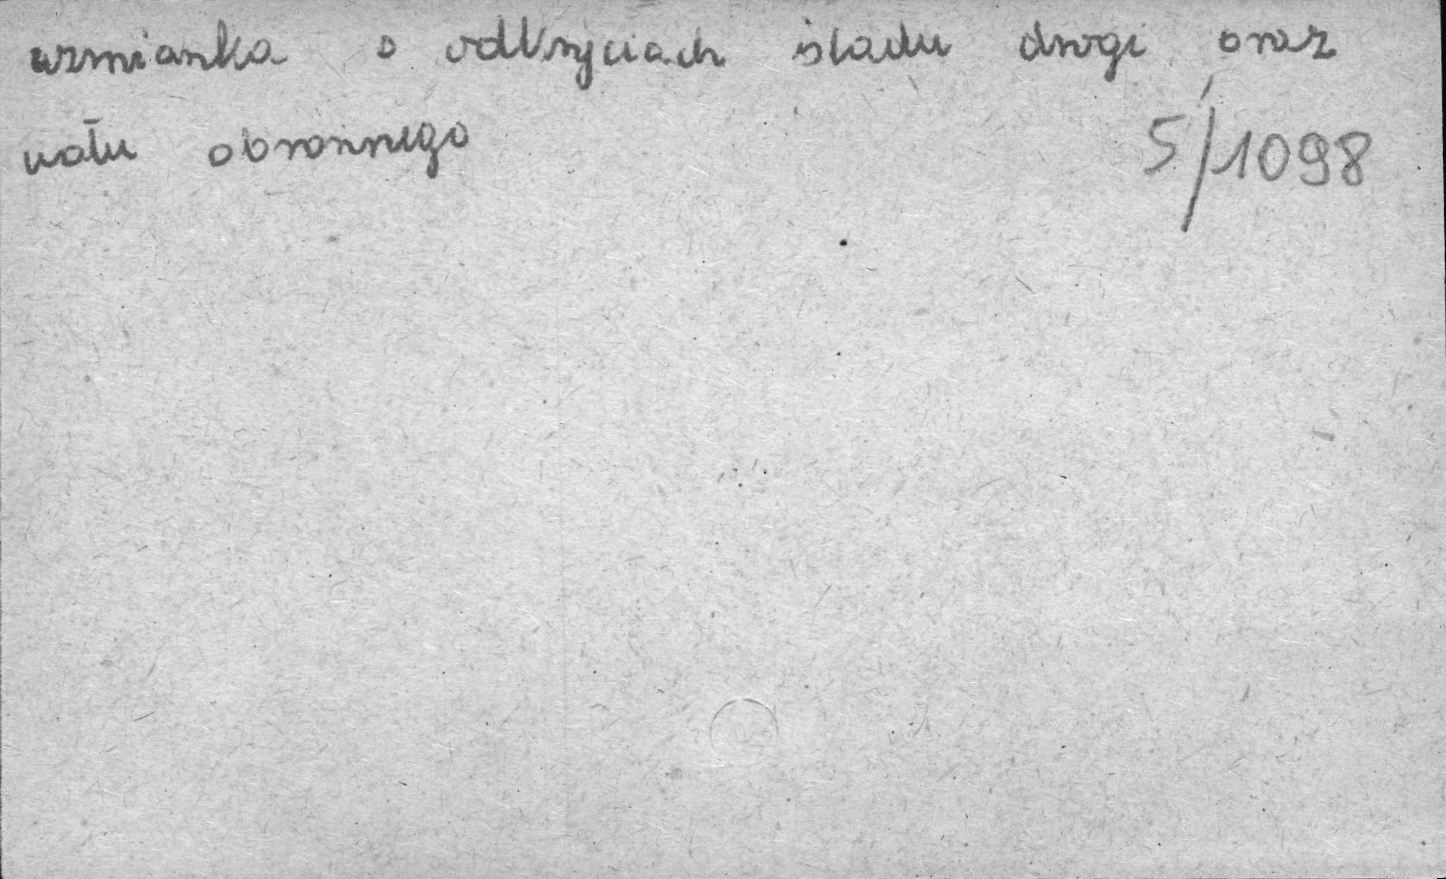 wzmianka o odkryciach śladu drogi oraz
wału obronnego 5/1098